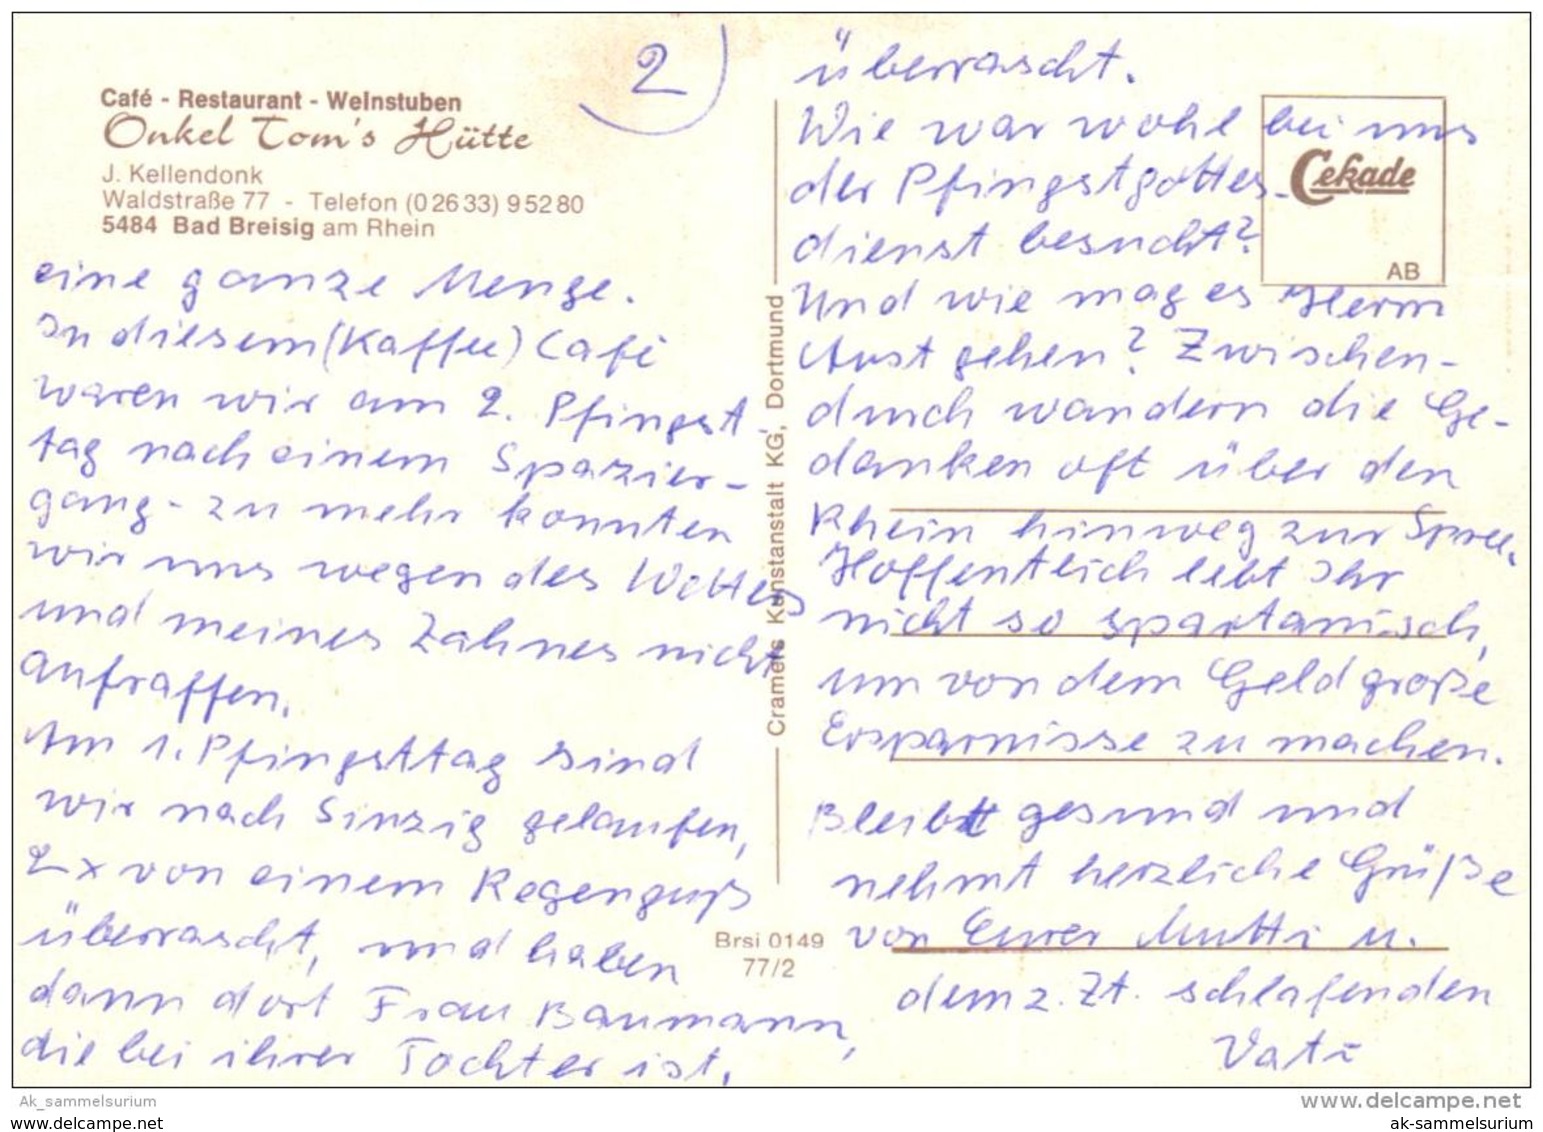 2
Café - Restaurant - Weinstuben
Onkel Tom's Hütte
J. Kellendonk
Waldstraße 77 - Telefon (02633) 95280
5484 Bad Breisig am Rhein
eine ganze Menge.
In diesem (Kaffee) Café
waren wir am 2. Pfingst-
tag nach einem Spazier-
gang - zu mehr konnten
wir uns wegen des Wetters
und meines Zahnes nicht
aufraffen.
Am 1. Pfingsttag sind
wir nach Sinzig gelaufen,
2x von einem Regenguß
überrascht, und haben
dann dort Frau Baumann,
die bei ihrer Tochter ist,
Cramers Kunstanstalt KG, Dortmund
Brsi 0149
77/2
überrascht.
Wie war wohl bei uns
der Pfingstgottes-
dienst besucht?
Und wie mag es Herrn
Aust gehen? Zwischen-
durch wandern die Ge-
danken oft über den
Rhein hinweg zur Spree.
Hoffentlich lebt Ihr
nicht so spartanisch,
um von dem Geld große
Ersparnisse zu machen.
Bleibt gesund und
nehmt herzliche Grüße
von Eurer Mutti u.
dem z. Zt. schlafenden
Vati
Cekade
AB
Ak_sammelsurium
www.delcampe.net
www.ak-sammelsurium.de
ak-sammelsurium